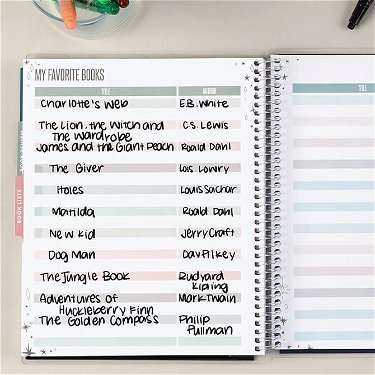 MY FAVORITE BOOKS
TITLE AUTHOR
Charlotte's Web E.B. White
The Lion, the Witch and C.S. Lewis
The Wardrobe
James and the Giant Peach Roald Dahl
The Giver Lois Lowry
Holes Louis Sachar
Matilda Roald Dahl
New Kid Jerry Craft
Dog Man Dav Pilkey
The Jungle Book Rudyard
Kipling
Adventures of Mark Twain
Huckleberry Finn
The Golden Compass Philip
Pullman
BOOK LISTS
TITLE